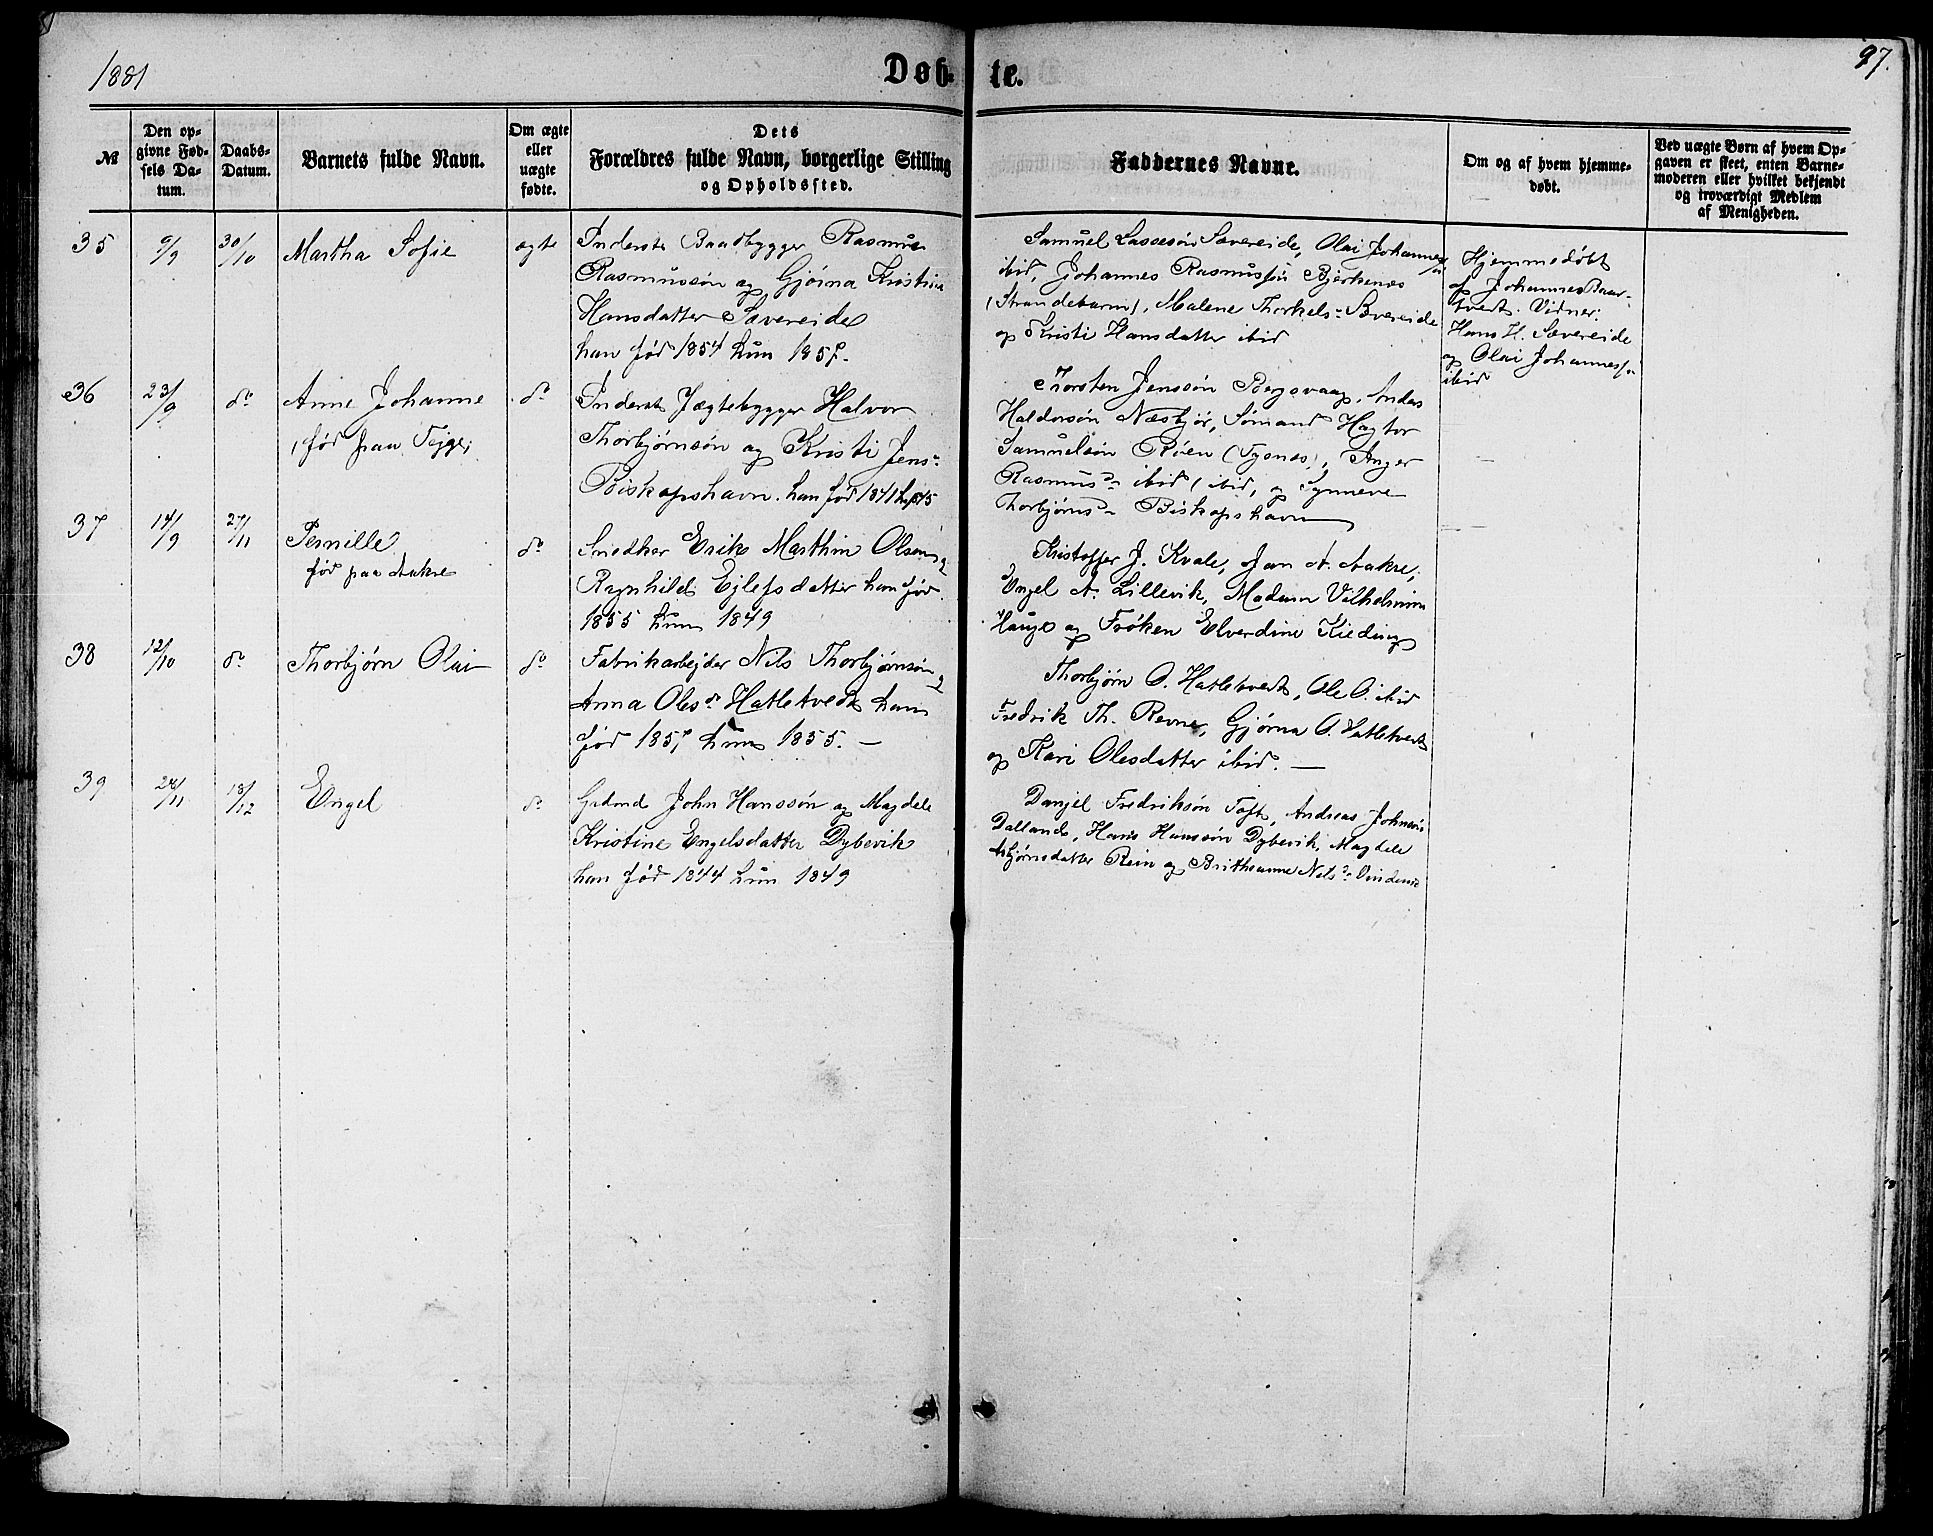 1881
Døb-
te.
97.
№
Den op-
givne Fød-
sels Da-
tum.
Daabs-
Datum.
Barnets fulde Navn.
Om ægte
eller
uægte
fødte.
Dets
Forældres fulde Navn, borgerlige Stilling
og Opholdssted.
Faddernes Navne.
Om og af hvem hjemme-
døbt.
Ved uægte Børn af hvem Op-
gaven er skeet, enten Barne-
moderen eller hvilket bekjendt
og troværdigt Medlem
af Menigheden.
35
9/9
30/10
Martha Sofie
ægte
Inderste Baadbygger Rasmus
Rasmussøn og Gjørina Kristina
Hansdatter Sævereide
han fød 1854 hun 1857.
Samuel Lassesøn Sævereide, Olai Johannes
ibid, Johannes Rasmussøn Bjerkenes
(Strandebarm), Malene Thorkels- Sævereide
og Kristi Hansdatter ibid
Hjemmedøbt
af Johannes
Vidner:
Hans H. Sævereide
og Olai Johannes
ibid
36
23/9
do
Anne Johanne
, fød paa
do
Inderst Jægtebygger Halvor
Thorbjørnsøn og Kristi Jens-
Biskopshavn. han fød 1841
Torsten Jenssøn Bergsvaag, Anders
Haldorsøn Næsbjør, Sømand
Samuelsøn Røen (Tysnes),
Rasmusd. ibid, ibid, og Synneve
Thorbjørnsd. Biskopshavn
37
14/9
27/11
Pernille
fød paa Aakre
do
Snedker Erik Marthin Olsen og
Ragnhild Ejlefsdatter han fød
1855 hun 1849
Kristoffer J. Kvale, Jan A. Aakre,
Engel A. Lillevik, Madam Vilhelmine
Hauge og Frøken Elverdine Kieding
38
12/10
do
Thorbjørn Olai
do
Fabrikarbejder Nils Thorbjørnsøn og
Anna Olesd. Hatletvedt han
fød 1857 hun 1855. —
Thorbjørn O. Hatletvedt, Ole O. ibid
Fredrik Th. Revne, Gjørna O. Hatletvedt
og Kari Olesdatter ibid. —
39
24/11
18/12
Engel
do
Grdmd John Hanssøn og Magdele
Kristine Engelsdatter Dybevik
han fød 1844 hun 1849
Danjel Fredriksøn Toft, Andreas Johnsøn
Dalland, Hans Hanssøn Dybevik, Magdele
Asbjørnsdatter Rein og Britheanne Nilsd. Vindenes